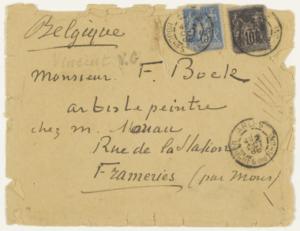 Belgique
Vincent V.G
Monsieur F. Bock
artiste peintre
chez m.
Rue de la Station
Frameries (par Mons)